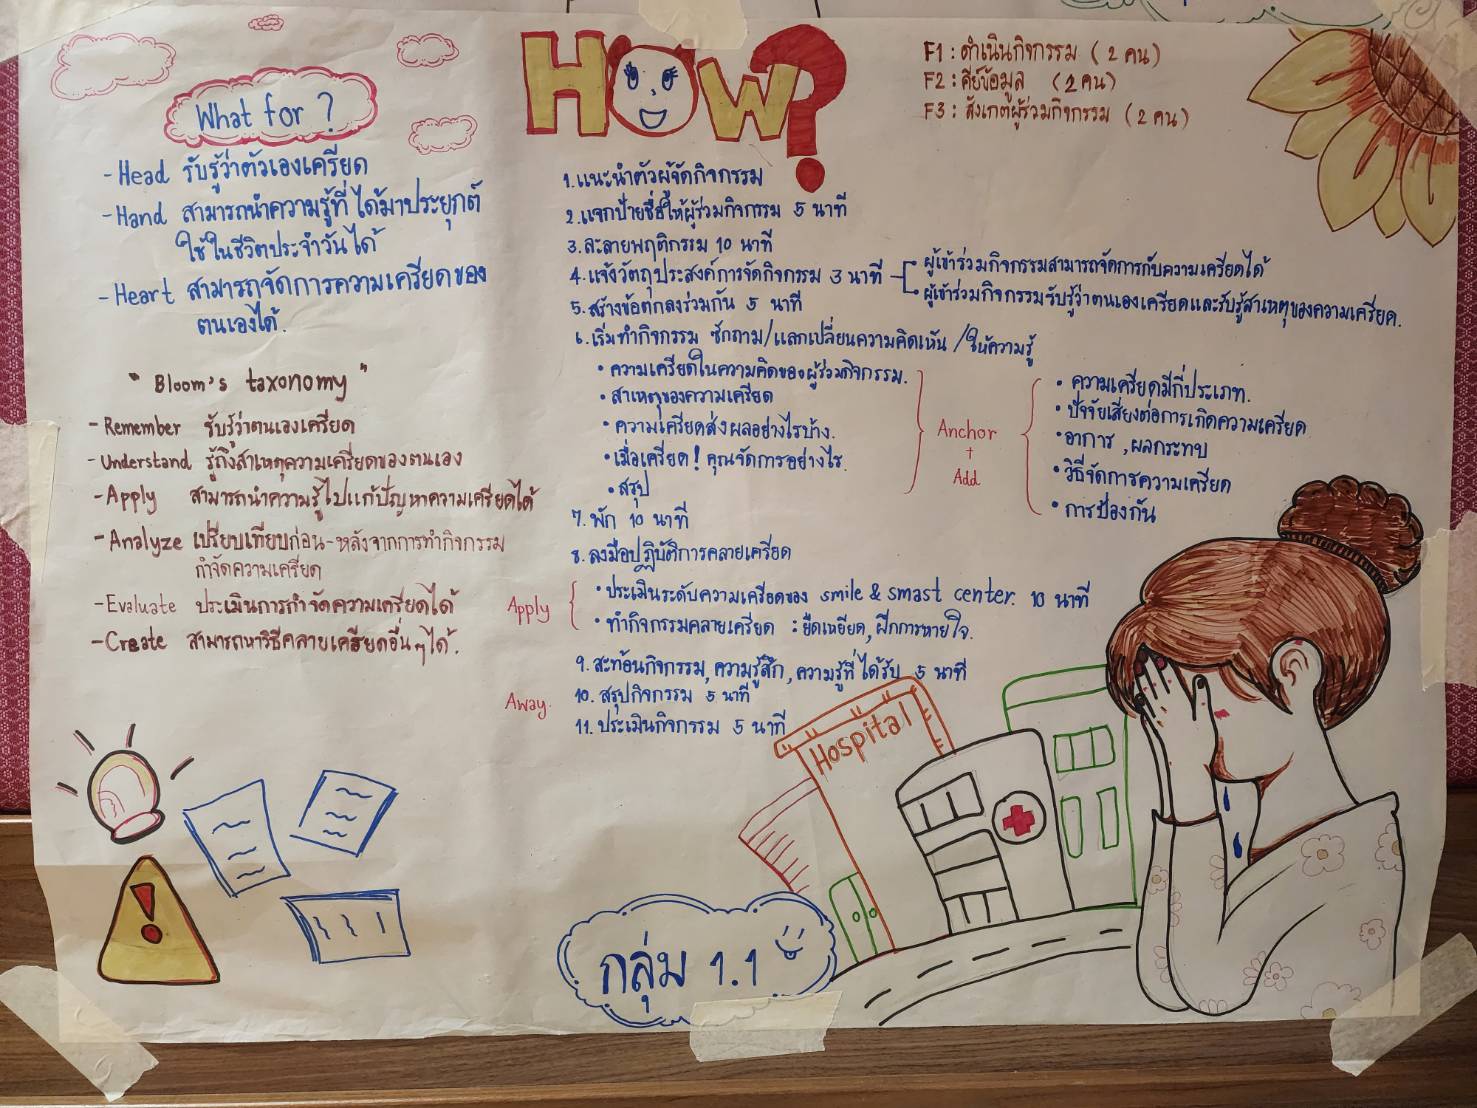 What for ?
- Head รับรู้ว่าตัวเองเครียด
- Hand สามารถนำความรู้ที่ได้มาประยุกต์
ใช้ในชีวิตประจำวันได้
- Heart สามารถจัดการความเครียดของ
ตนเองได้.
" Bloom's taxonomy "
- Remember รับรู้ว่าตนเองเครียด
- Understand รู้ถึงสาเหตุความเครียดของตนเอง
- Apply สามารถนำความรู้ไปแก้ปัญหาความเครียดได้
- Analyze เปรียบเทียบก่อน-หลังจากการทำกิจกรรม
กำจัดความเครียด
- Evaluate ประเมินการกำจัดความเครียดได้
- Create สามารถหาวิธีคลายเครียดอื่นๆได้.
HOW?
F1 : ดำเนินกิจกรรม (2 คน)
F2 : คีย์ข้อมูล (2 คน)
F3 : สังเกตผู้ร่วมกิจกรรม (2 คน)
1. แนะนำตัวผู้จัดกิจกรรม
2. แจกป้ายชื่อให้ผู้ร่วมกิจกรรม 5 นาที
3. ละลายพฤติกรรม 10 นาที
4. แจ้งวัตถุประสงค์การจัดกิจกรรม 3 นาที
ผู้เข้าร่วมกิจกรรมสามารถจัดการกับความเครียดได้
ผู้เข้าร่วมกิจกรรมรับรู้ว่าตนเองเครียดและรับรู้สาเหตุของความเครียด.
5. สร้างข้อตกลงร่วมกัน 5 นาที
6. เริ่มทำกิจกรรม ซักถาม/แลกเปลี่ยนความคิดเห็น /ให้ความรู้
• ความเครียดในความคิดของผู้ร่วมกิจกรรม.
• สาเหตุของความเครียด
• ความเครียดส่งผลอย่างไรบ้าง.
• เมื่อเครียด! คุณจัดการอย่างไร.
• สรุป
Anchor
+
Add
• ความเครียดมีกี่ประเภท.
• ปัจจัยเสี่ยงต่อการเกิดความเครียด
• อาการ , ผลกระทบ
• วิธีจัดการความเครียด
• การป้องกัน
7. พัก 10 นาที
8. ลงมือปฏิบัติการคลายเครียด
Apply
• ประเมินระดับความเครียดของ smile & smast center. 10 นาที
• ทำกิจกรรมคลายเครียด : ยืดเหยียด, ฝึกการหายใจ.
9. สะท้อนกิจกรรม, ความรู้สึก, ความรู้ที่ได้รับ 5 นาที
Away.
10. สรุปกิจกรรม 5 นาที
11. ประเมินกิจกรรม 5 นาที
Hospital
กลุ่ม 1.1